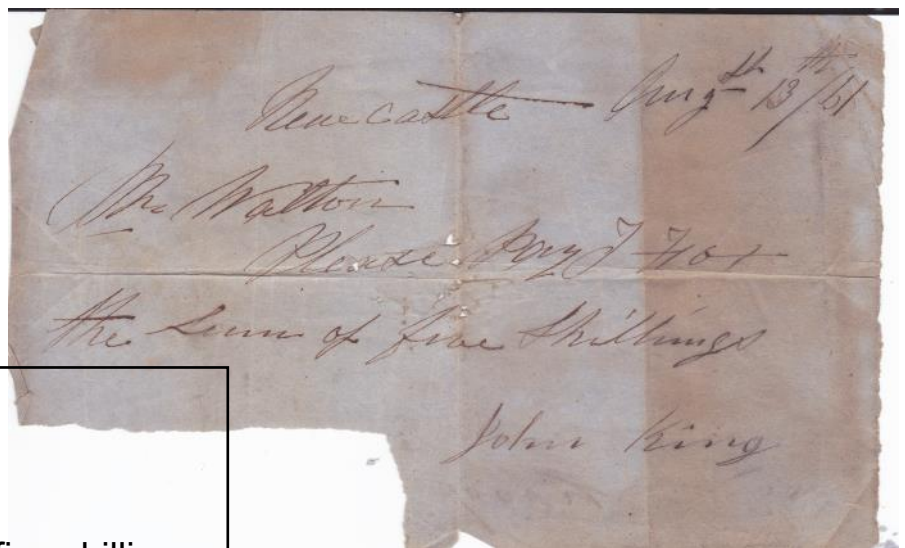 Newcastle — Augth 13th/61
Mr Walton
Please Pay J Fox
the Sum of five Shillings
John King
five shilli